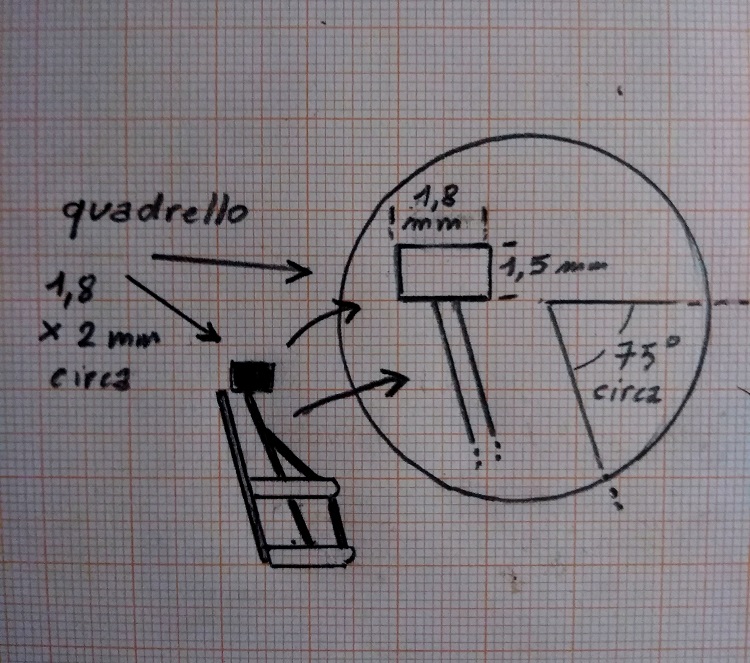 quadrello
1,8
× 2 mm
circa
1,8
mm
1,5 mm
75°
circa